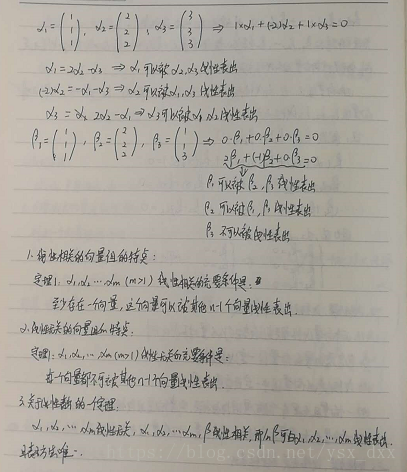 α₁=(1 1 1), α₂=(2 2 2), α₃=(3 3 3) ⇒ 1×α₁+(-2)α₂+1×α₃=0
α₁=2α₂-α₃ ⇒ α₁可以被α₂,α₃线性表出
(-2)α₂=-α₁-α₃ ⇒ α₂可以被α₁,α₃线性表出
α₃=2α₂-α₁ ⇒ α₃可以被α₁,α₂线性表出
β₁=(1 1 1), β₂=(2 2 2), β₃=(1 1 3) ⇒ 0·β₁+0·β₂+0·β₃=0
2β₁+(-1)β₂+0·β₃=0
β₁可以被β₂,β₃线性表出
β₂可以被β₁,β₃线性表出
β₃不可以被线性表出
1.线性相关的向量组的特点:
定理1:α₁,α₂,…αm(m>1)线性相关的充要条件是:
至少存在一个向量,这个向量可以被其他n-1个向量线性表出.
2.线性无关的向量组的特点:
定理1:α₁,α₂,…αm(m>1)线性无关的充要条件是:
每个向量都不可被其他n-1个向量线性表出.
3.关于线性表出的一个定理:
α₁,α₂,…αm线性无关,α₁,α₂,…αm,β线性相关,那么β可由α₁,α₂,…αm线性表出
且表示方法唯一.
https://blog.csdn.net/ysx_dxx